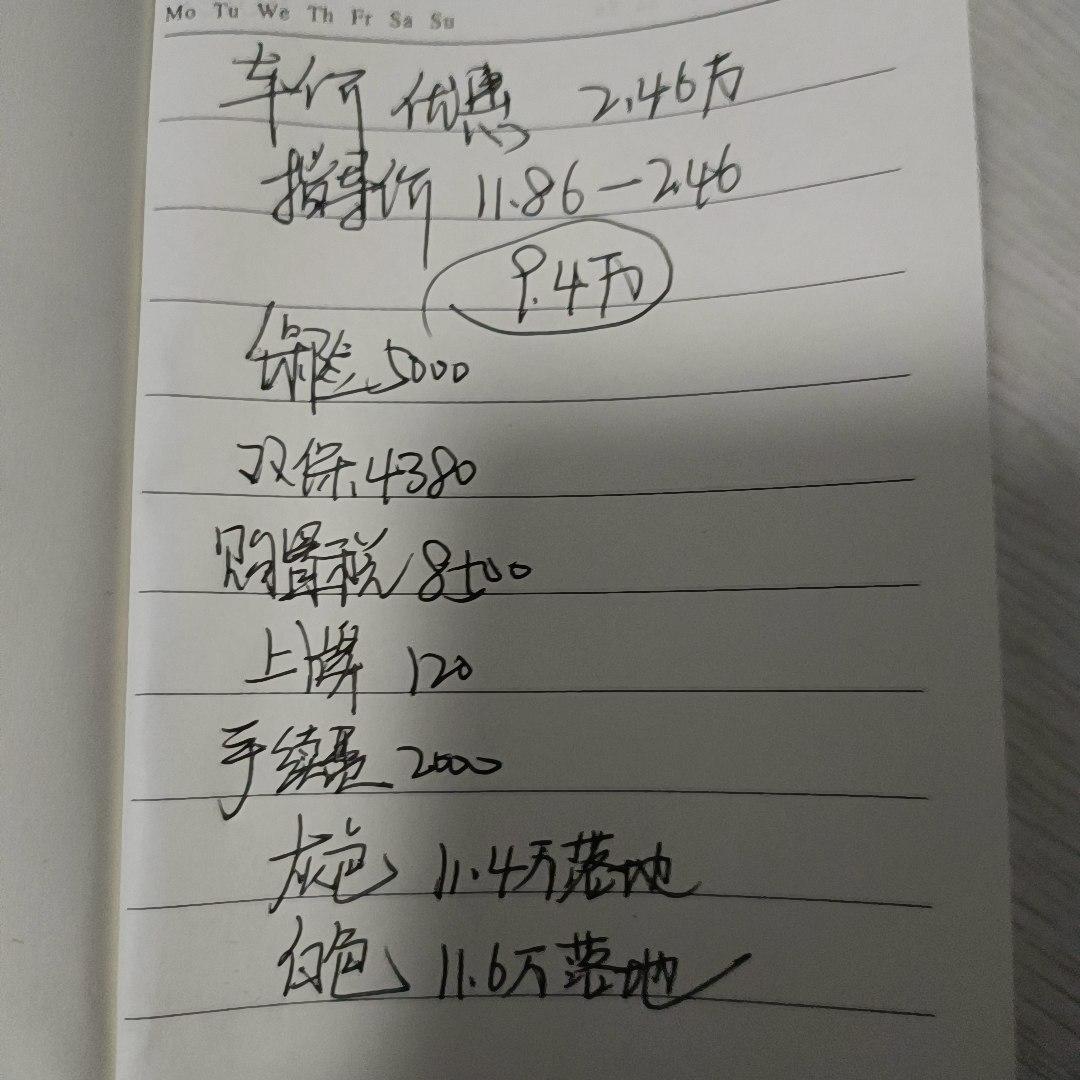 Mo Tu We Th Fr Sa Su
车价 优惠 2.46万
指导价 11.86-2.46
9.4万
保险 5000
双保 4380
购置税 8500
上牌 120
手续费 2000
灰色 11.4万落地
白色 11.6万落地